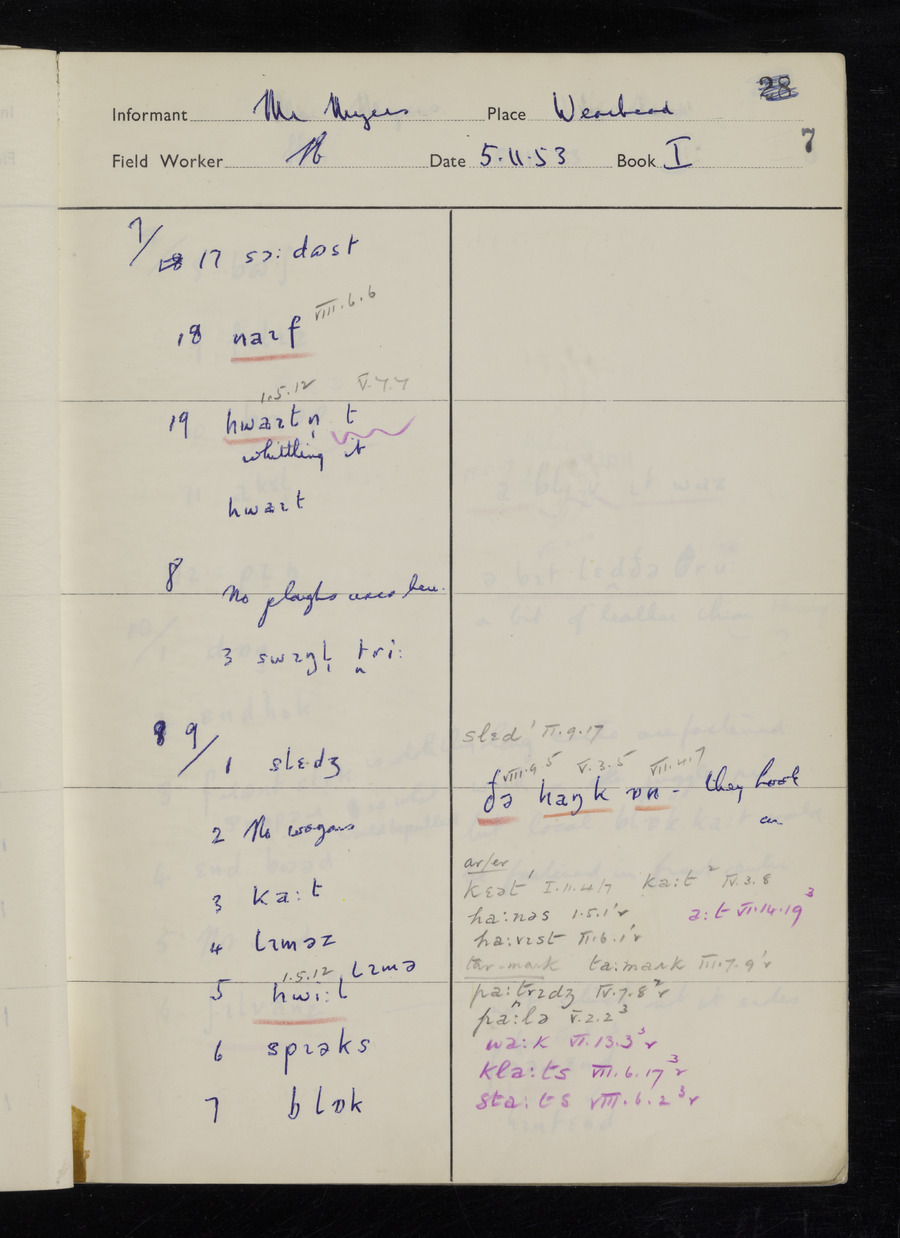 28
Informant Mr Place Wearhead
7
Field Worker Date 5·11·53 Book I
7/
17 sɔː dʊst
18 naɪf VIII.6.6
1.5.12 V.7.7
19 hwaɪtn̩ t
whittling it
hwaɪt
8 No ploughs used here.
3 swɪŋl̩ triː
9/
1 slɛdʒ
sled' II.9.17
VIII.9.5 V.3.5 VII.4.7
ðə haŋk ɒn - they hook on
2 No wagons
3 kaːt
ar/er
kɛət' I.11.4/7 kaːt² IV.3.8
haːnəs 1.5.1'r aːt VI.14.19³
4 lɪməz
haːvɪst II.6.1'r
lɪmə
tar-mark taːmark III.7.9'r
1.5.12
5 hwiːl
paːtrɪdʒ IV.7.8²r
paːlə V.2.2³
6 spɪəks
waːk VI.13.3³r
klaːts VII.6.17³r
7 blɒk
staːts VIII.6.2³r